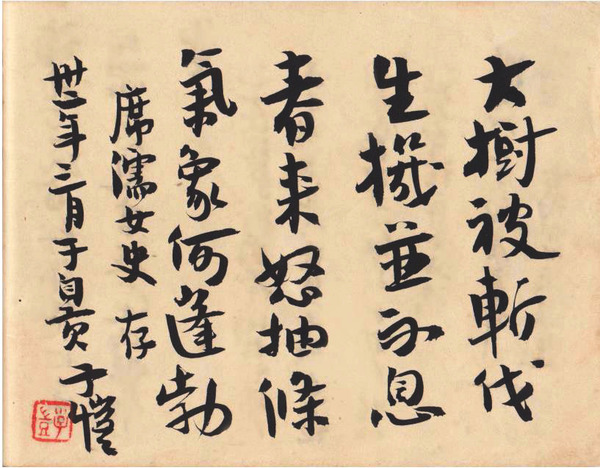 大樹被斬伐
生機並不息
春来怒抽條
氣象何蓬勃
席濡女史 存
卅二年三月于自貢 子愷